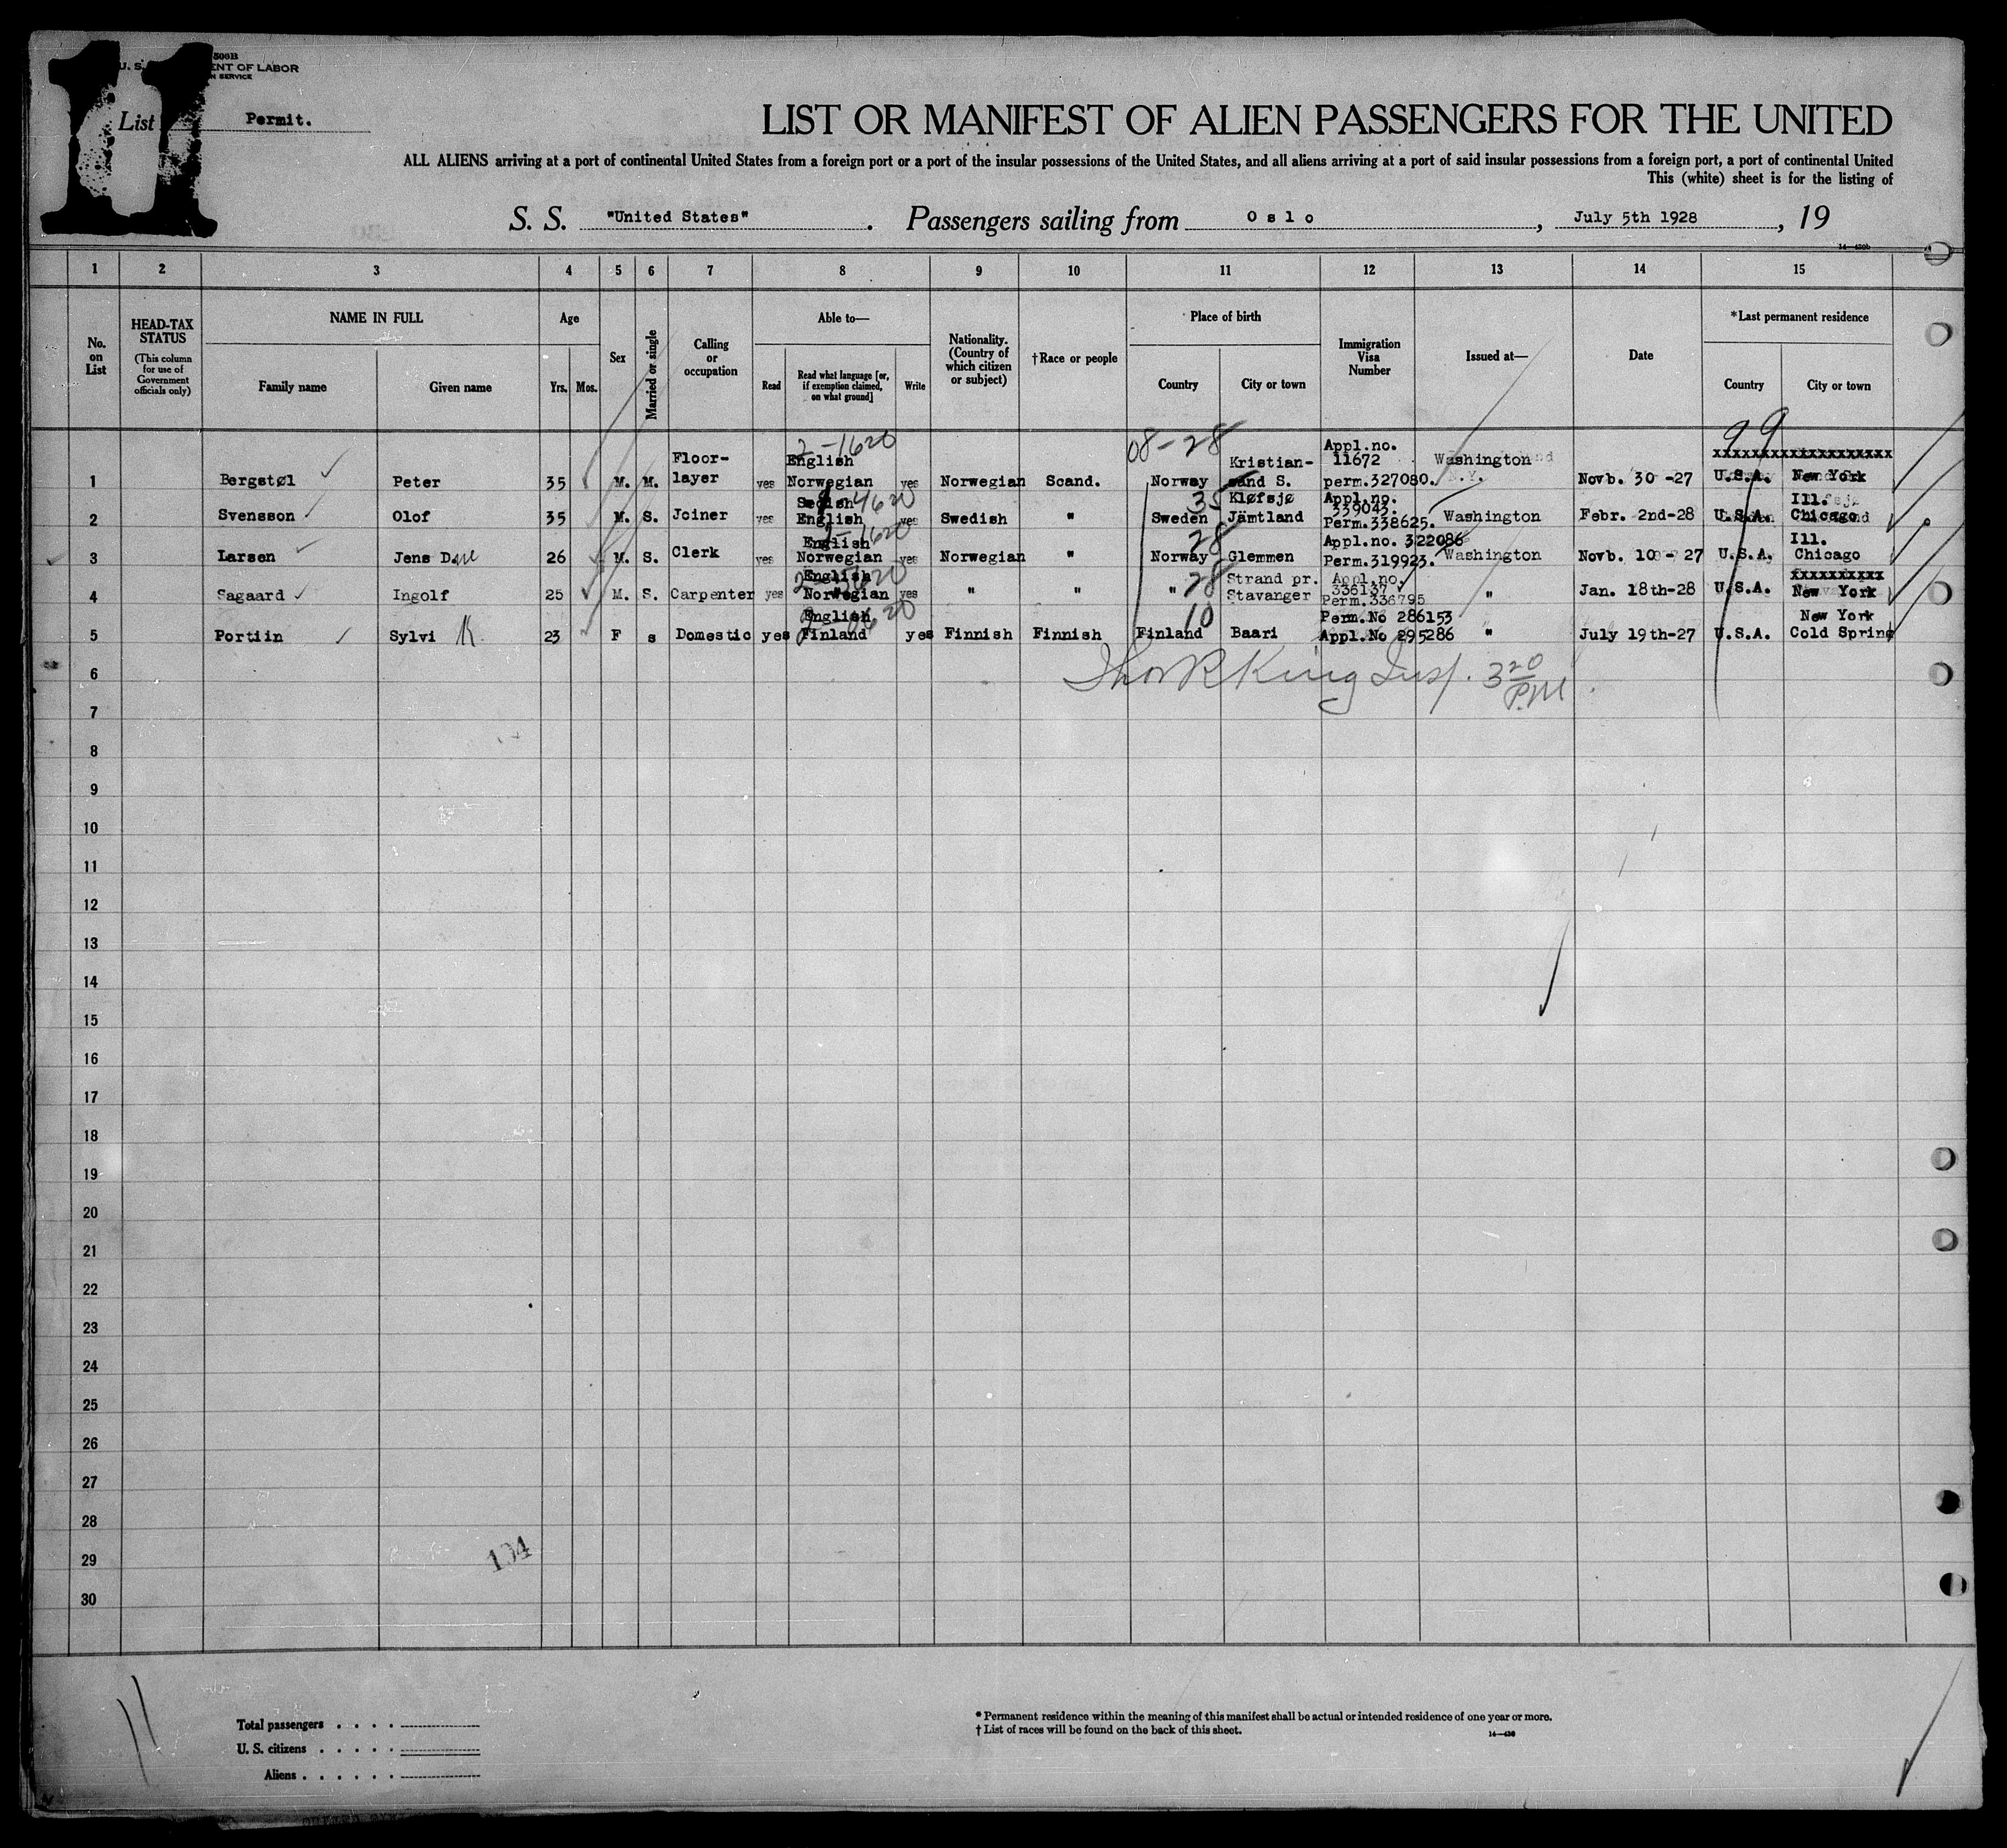 11
500B
U. S. ENT OF LABOR
N SERVICE
List Permit.
LIST OR MANIFEST OF ALIEN PASSENGERS FOR THE UNITED
ALL ALIENS arriving at a port of continental United States from a foreign port or a port of the insular possessions of the United States, and all aliens arriving at a port of said insular possessions from a foreign port, a port of continental United
This (white) sheet is for the listing of
S. S. "United States". Passengers sailing from Oslo, July 5th 1928, 19
1 2 3 4 5 6 7 8 9 10 11 12 13 14 15
No. on List
HEAD-TAX STATUS
(This column for use of Government officials only)
NAME IN FULL
Family name Given name
Age
Yrs. Mos.
Sex
Married or single
Calling or occupation
Able to—
Read
Read what language [or, if exemption claimed, on what ground]
Write
Nationality. (Country of which citizen or subject)
†Race or people
Place of birth
Country City or town
Immigration Visa Number
Issued at—
Date
*Last permanent residence
Country City or town
2-1620 08-28 99
1 Bergstøl Peter 35 M. M. Floor-layer yes English Norwegian yes Norwegian Scand. Norway Kristian-sand S. Appl.no. 11672 perm.327080. Washington Novb. 30-27 U.S.A. New York
2 Svensson Olof 35 M. S. Joiner yes English yes Swedish " Sweden 35 Kløfsjø Jämtland Appl.no. 339043. Perm.338625. Washington Febr. 2nd-28 U.S.A. Ill. Chicago
3 Larsen Jens D. 26 M. S. Clerk yes English Norwegian yes Norwegian " Norway 28 Glemmen Appl.no. 322086 Perm.319923. Washington Novb. 10-27 U.S.A. Ill. Chicago
4 Sagaard Ingolf 25 M. S. Carpenter yes English Norwegian yes " " " 28 Strand pr. Stavanger Appl.no. 336137 Perm.336795 " Jan. 18th-28 U.S.A. New York
5 Portiin Sylvi K 23 F s Domestic yes English Finland yes Finnish Finnish Finland 10 Baari Perm.No 286153 Appl.No 295286 " July 19th-27 U.S.A. New York Cold Spring
6 King Insp. 3 20 P.M.
7
8
9
10
11
12
13
14
15
16
17
18
19
20
21
22
23
24
25
26
27
28
29
30
104
11
Total passengers . . . .
U. S. citizens . . . . .
Aliens . . . . . .
* Permanent residence within the meaning of this manifest shall be actual or intended residence of one year or more.
† List of races will be found on the back of this sheet.
14—430